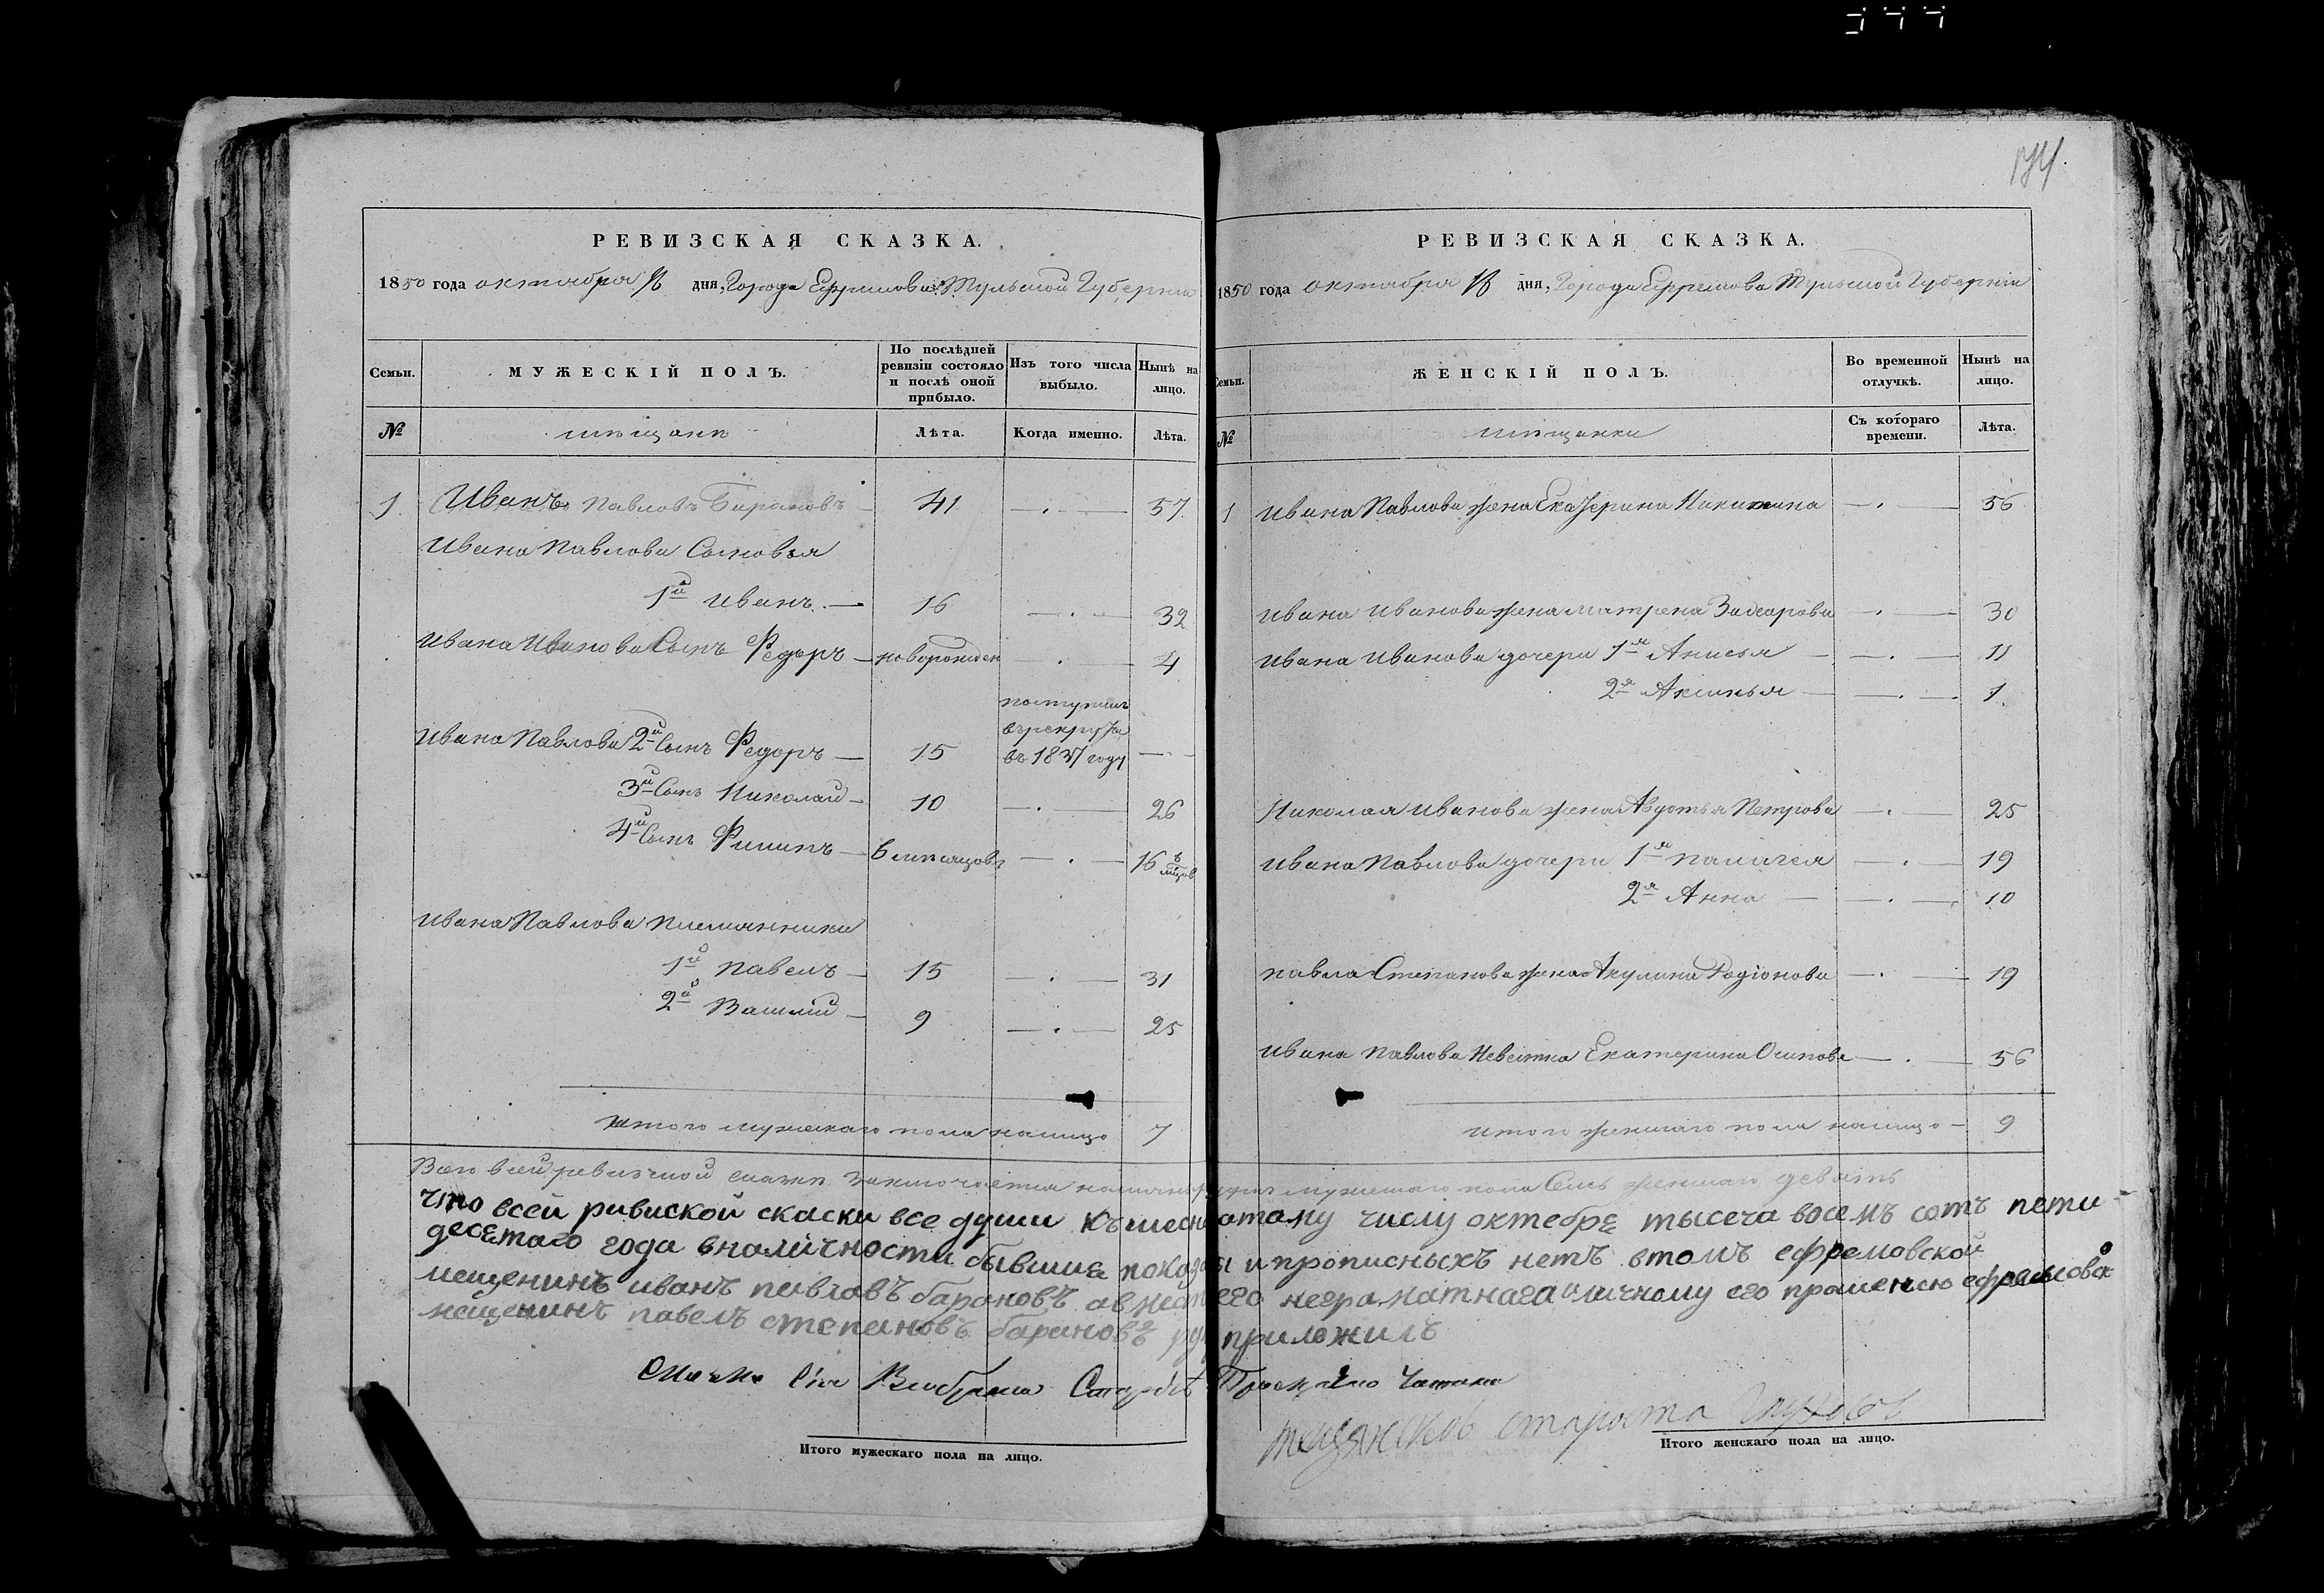 РЕВИЗСКАЯ СКАЗКА.
1850 года октября 16 дня, Города Ефремова Тульской Губернии
Семьи.
МУЖЕСКІЙ ПОЛЪ.
По послѣдней ревизіи состояло и послѣ оной прибыло.
Изъ того числа выбыло.
Нынѣ на лицо.
№
мѣщане
Лѣта.
Когда именно.
Лѣта.
1 Иванъ Павловъ Барановъ 41 57
Ивана Павлова Сыновья
1й Иванъ 16 32
Ивана Иванова Сынъ Федоръ новорожден 4
поступилъ
въ рекруты
Ивана Павлова 2й Сынъ Федоръ 15 въ 1837 году
3й Сынъ Николай 10 26
4й Сынъ Филипъ 6 мѣсяцовъ 16 6 мѣцов
Ивана Павлова племянники
1й Павелъ 15 31
2й Василій 9 25
итого мужескаго пола налицо 7
РЕВИЗСКАЯ СКАЗКА.
1850 года октября 16 дня, Города Ефремова Тульской Губерніи
Семьи.
ЖЕНСКІЙ ПОЛЪ.
Во временной отлучкѣ.
Нынѣ на лицо.
№
мѣщанки
Съ котораго времени.
Лѣта.
1 Ивана Павлова жена Екатерина Никитина 56
Ивана Иванова жена Матрена Захарова 30
Ивана Иванова дочери 1я Анисья 11
2я Аксинья 1
Николая Иванова жена Авдотья Петрова 25
Ивана Павлова дочери 1я Палагея 19
2я Анна 10
Павла Степанова жена Акулина Родіонова 19
Ивана Павлова Невестка Екатерина Осипова 56
итого женскаго пола налицо 9
Всего в сей ревизской сказке заключается налично душъ мужескаго пола Семь женскаго девять
что всей ривиской скаски все души къ шеснатаму числу октебре тысеча восемъ сотъ пети-
десетаго года вналичности бывшие показаны и прописныхъ нетъ втомъ ефремовской
мещенинъ иванъ павлавъ барановъ авместо его неграматнага поличному его прошению ефремовской
мещенинъ павелъ степановъ барановъ руку приложилъ
мещанской староста
Итого мужескаго пола на лицо.
Итого женскаго пола на лицо.